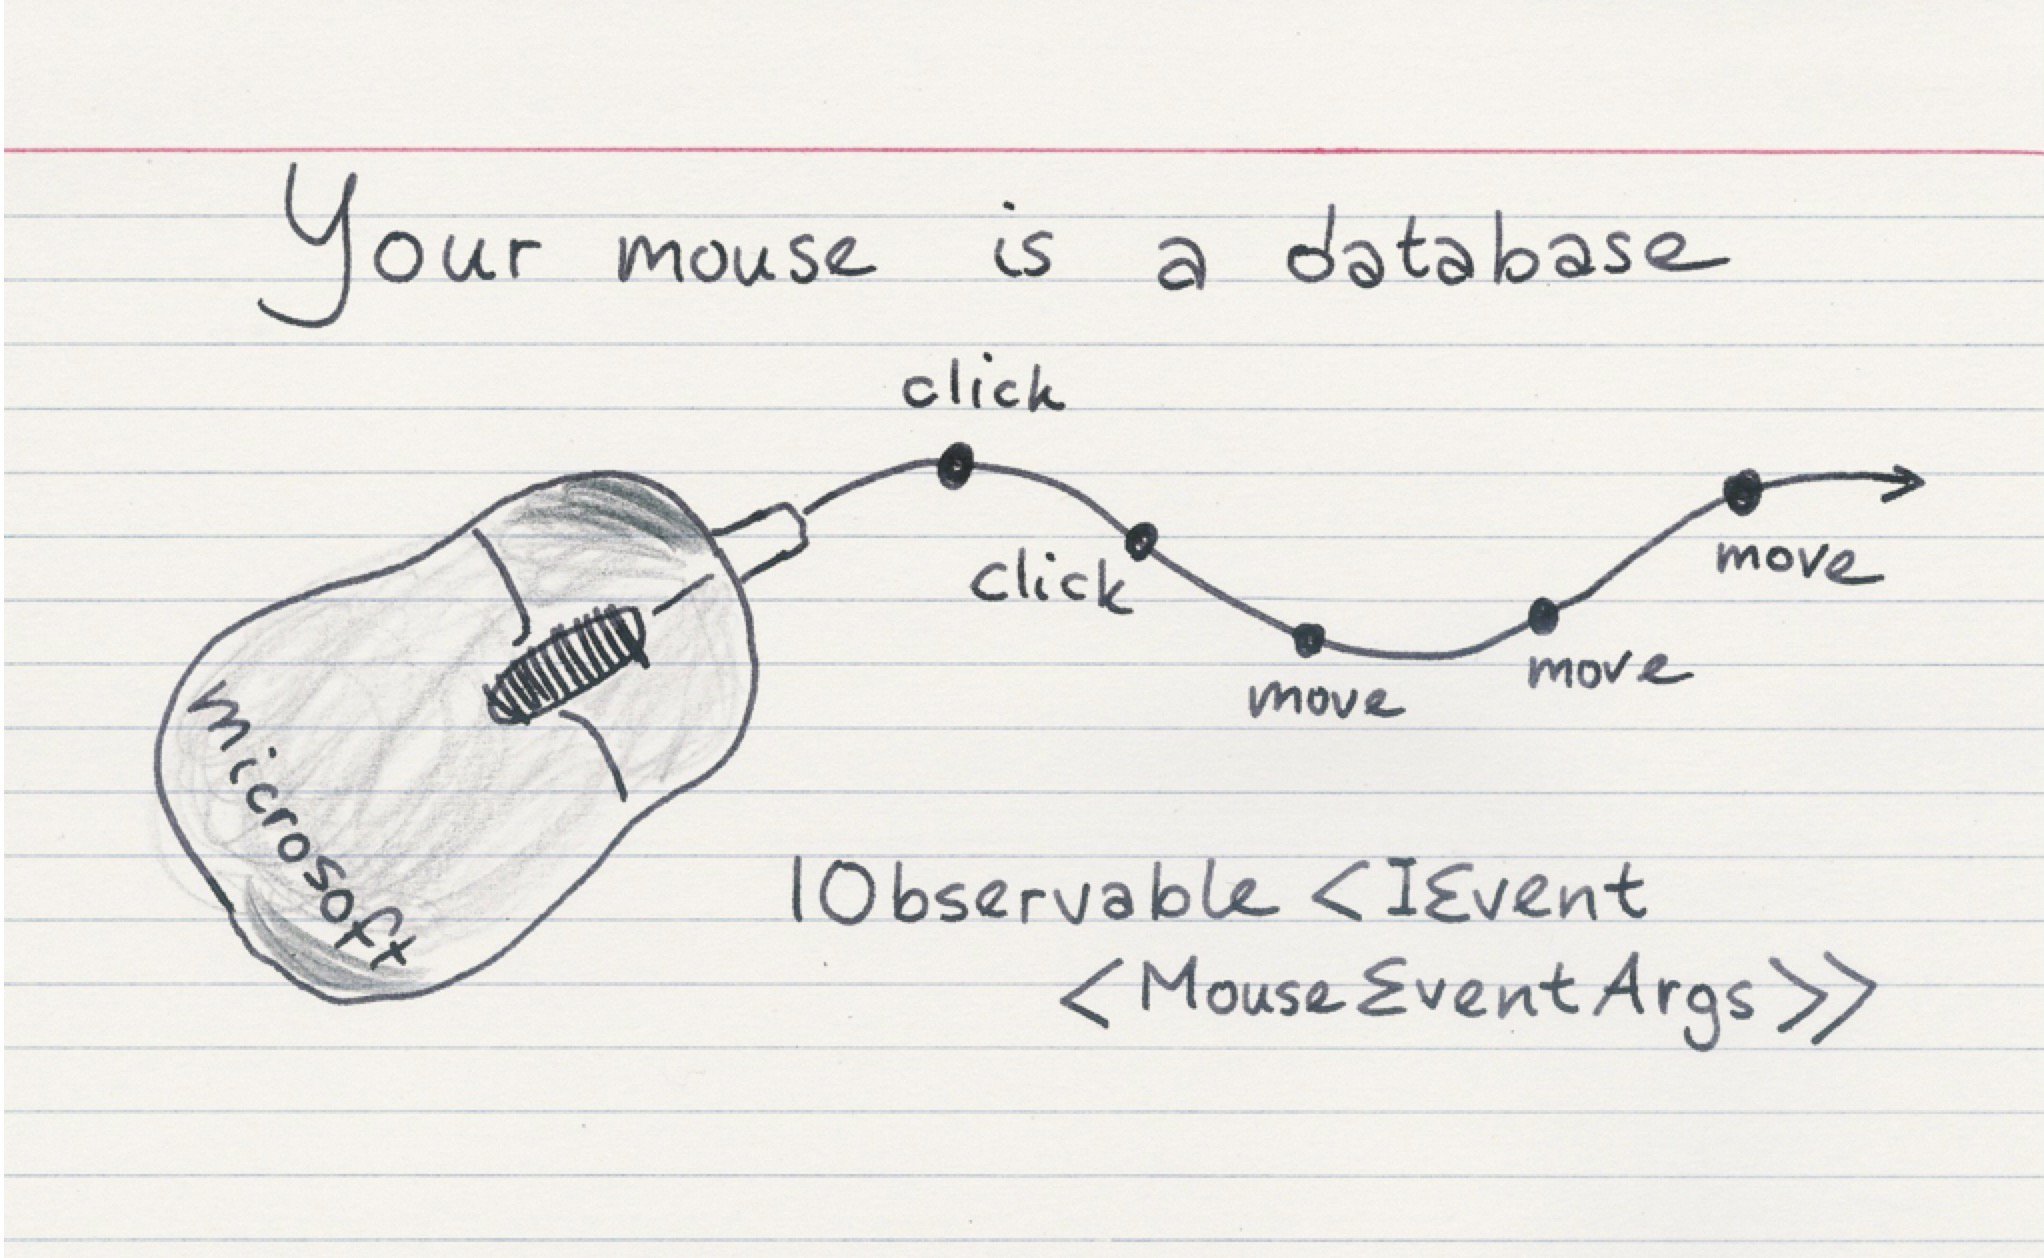 Your mouse is a database
click
click
move
move
move
microsoft
IObservable <IEvent
<MouseEventArgs>>